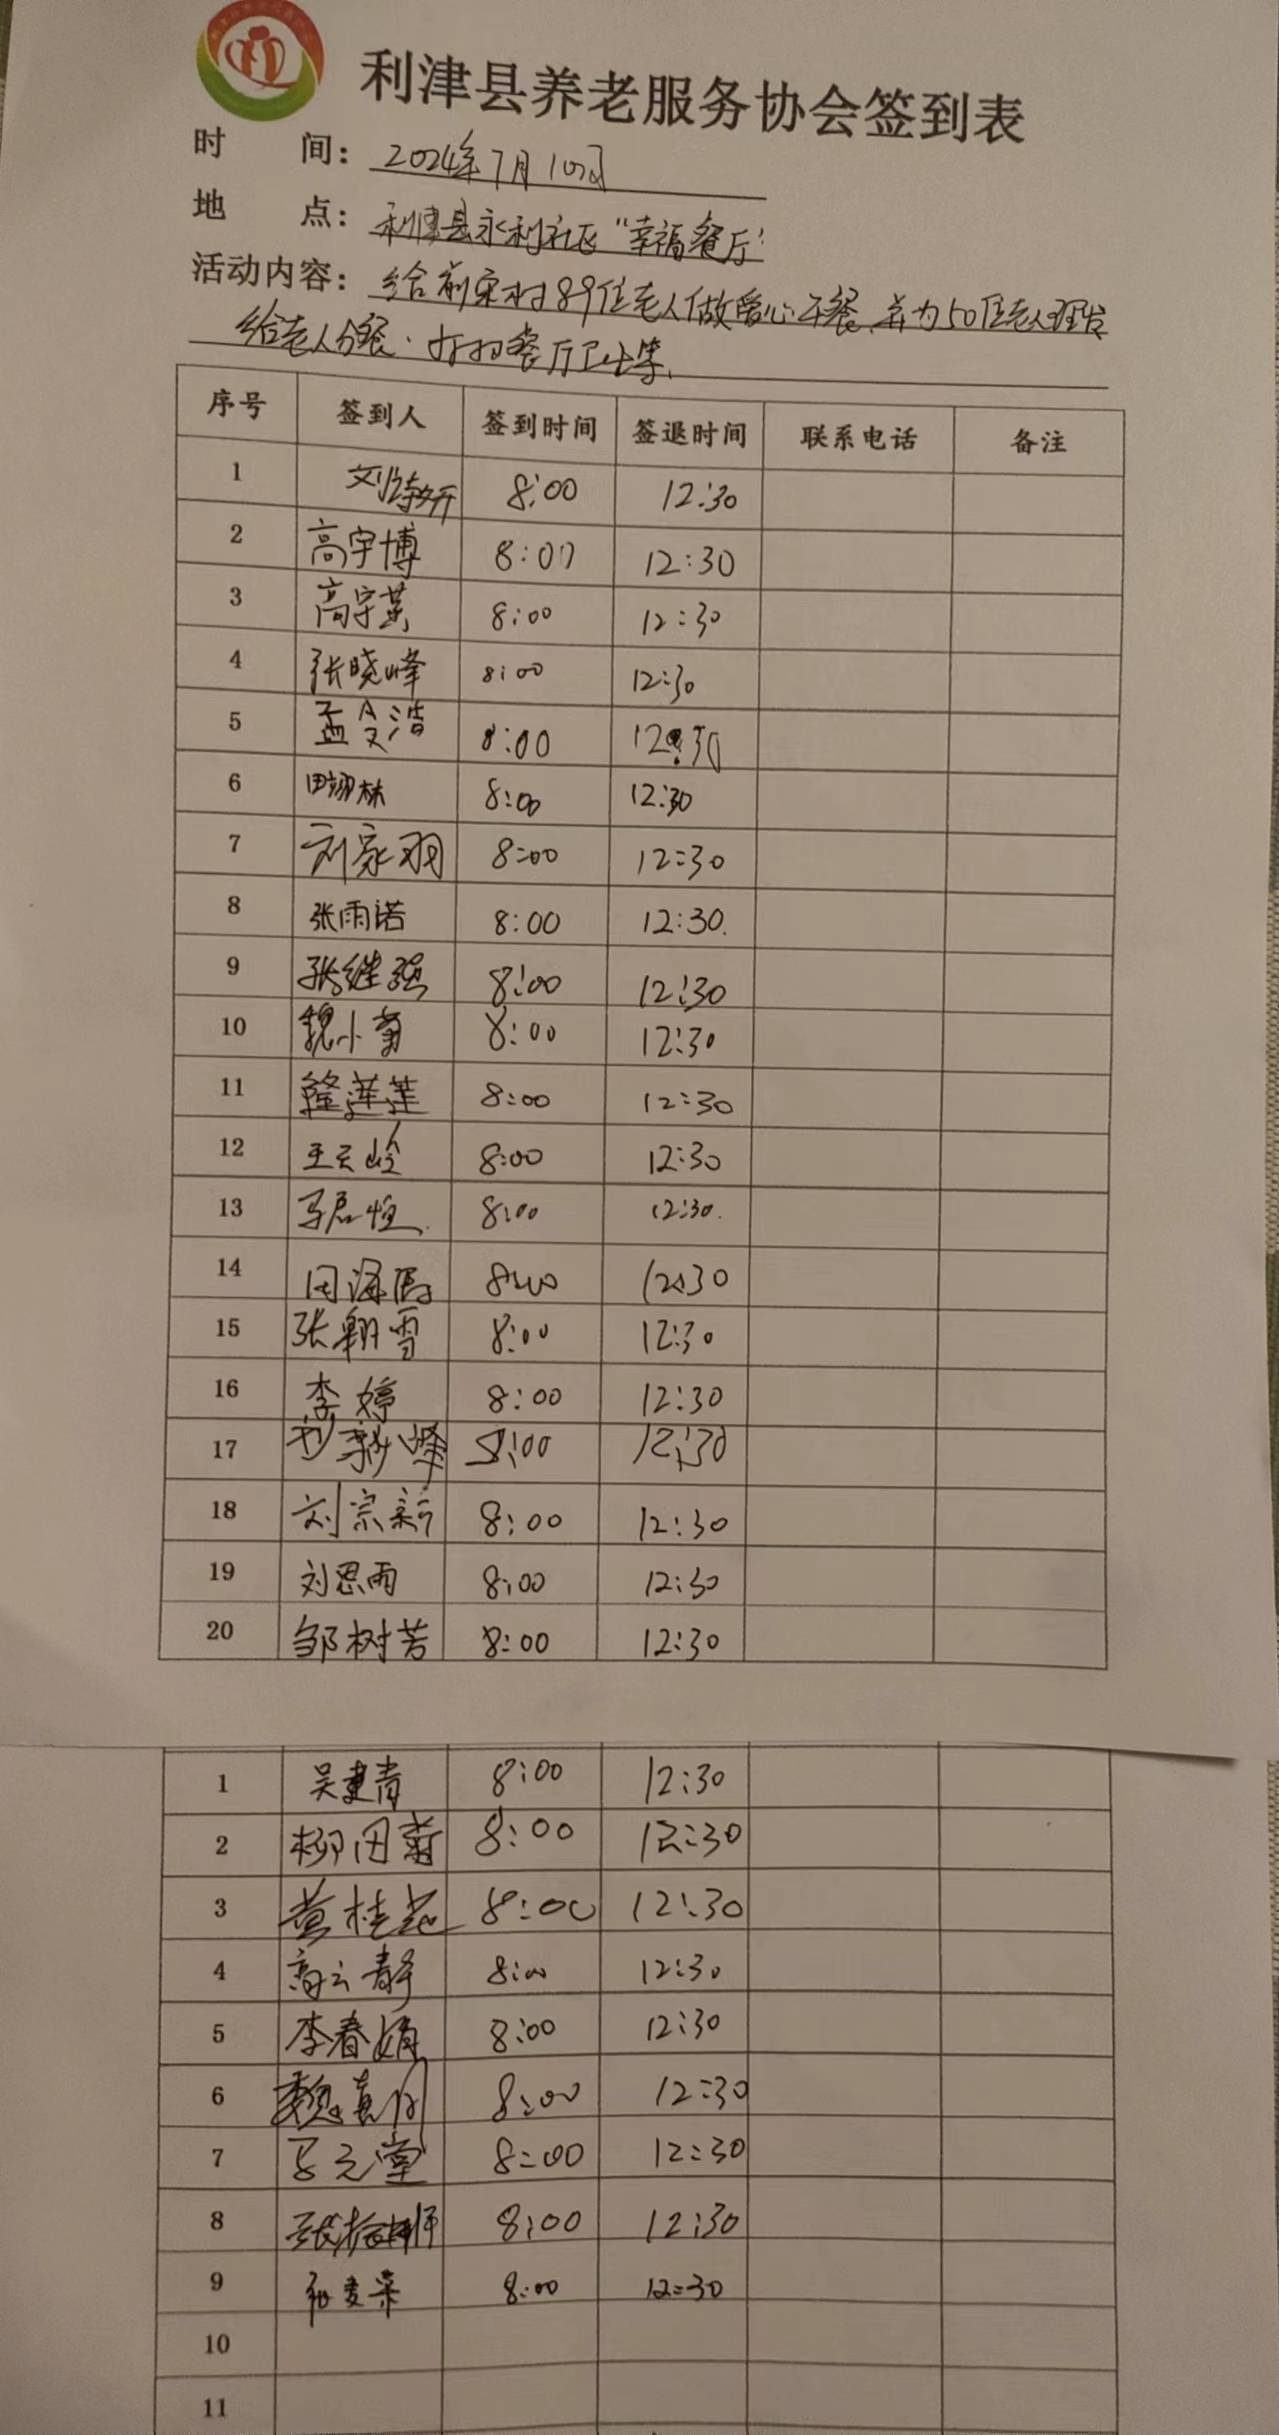 利津县养老服务协会签到表
时 间：2024年7月10日
地 点：利津县永利社区“幸福餐厅”
活动内容：给前宋村89位老人做爱心午餐，并为50位老人理发
给老人分餐．打扫餐厅卫生等．
序号 签到人 签到时间 签退时间 联系电话 备注
1 刘诗妍 8:00 12:30
2 高宇博 8:00 12:30
3 高宇 8:00 12:30
4 张晓峰 8:00 12:30
5 孟令浩 8:00 12:30
6 田翊林 8:00 12:30
7 刘家羽 8:00 12:30
8 张雨诺 8:00 12:30.
9 张继强 8:00 12:30
10 魏小菊 8:00 12:30
11 隆莲莲 8:00 12:30
12 王云岭 8:00 12:30
13 马居恒. 8:00 12:30.
14 田海 8:00 12:30
15 张翱雪 8:00 12:30
16 李婷 8:00 12:30
17 8:00 12:30
18 刘宗新 8:00 12:30
19 刘恩雨 8:00 12:30
20 邹树芳 8:00 12:30
1 吴建青 8:00 12:30
2 柳田菊 8:00 12:30
3 黄桂 8:00 12:30
4 高云静 8:00 12:30
5 李春娟 8:00 12:30
6 魏真 8:00 12:30
7 元堂 8:00 12:30
8 8:00 12:30
9 8:00 12:30
10
11